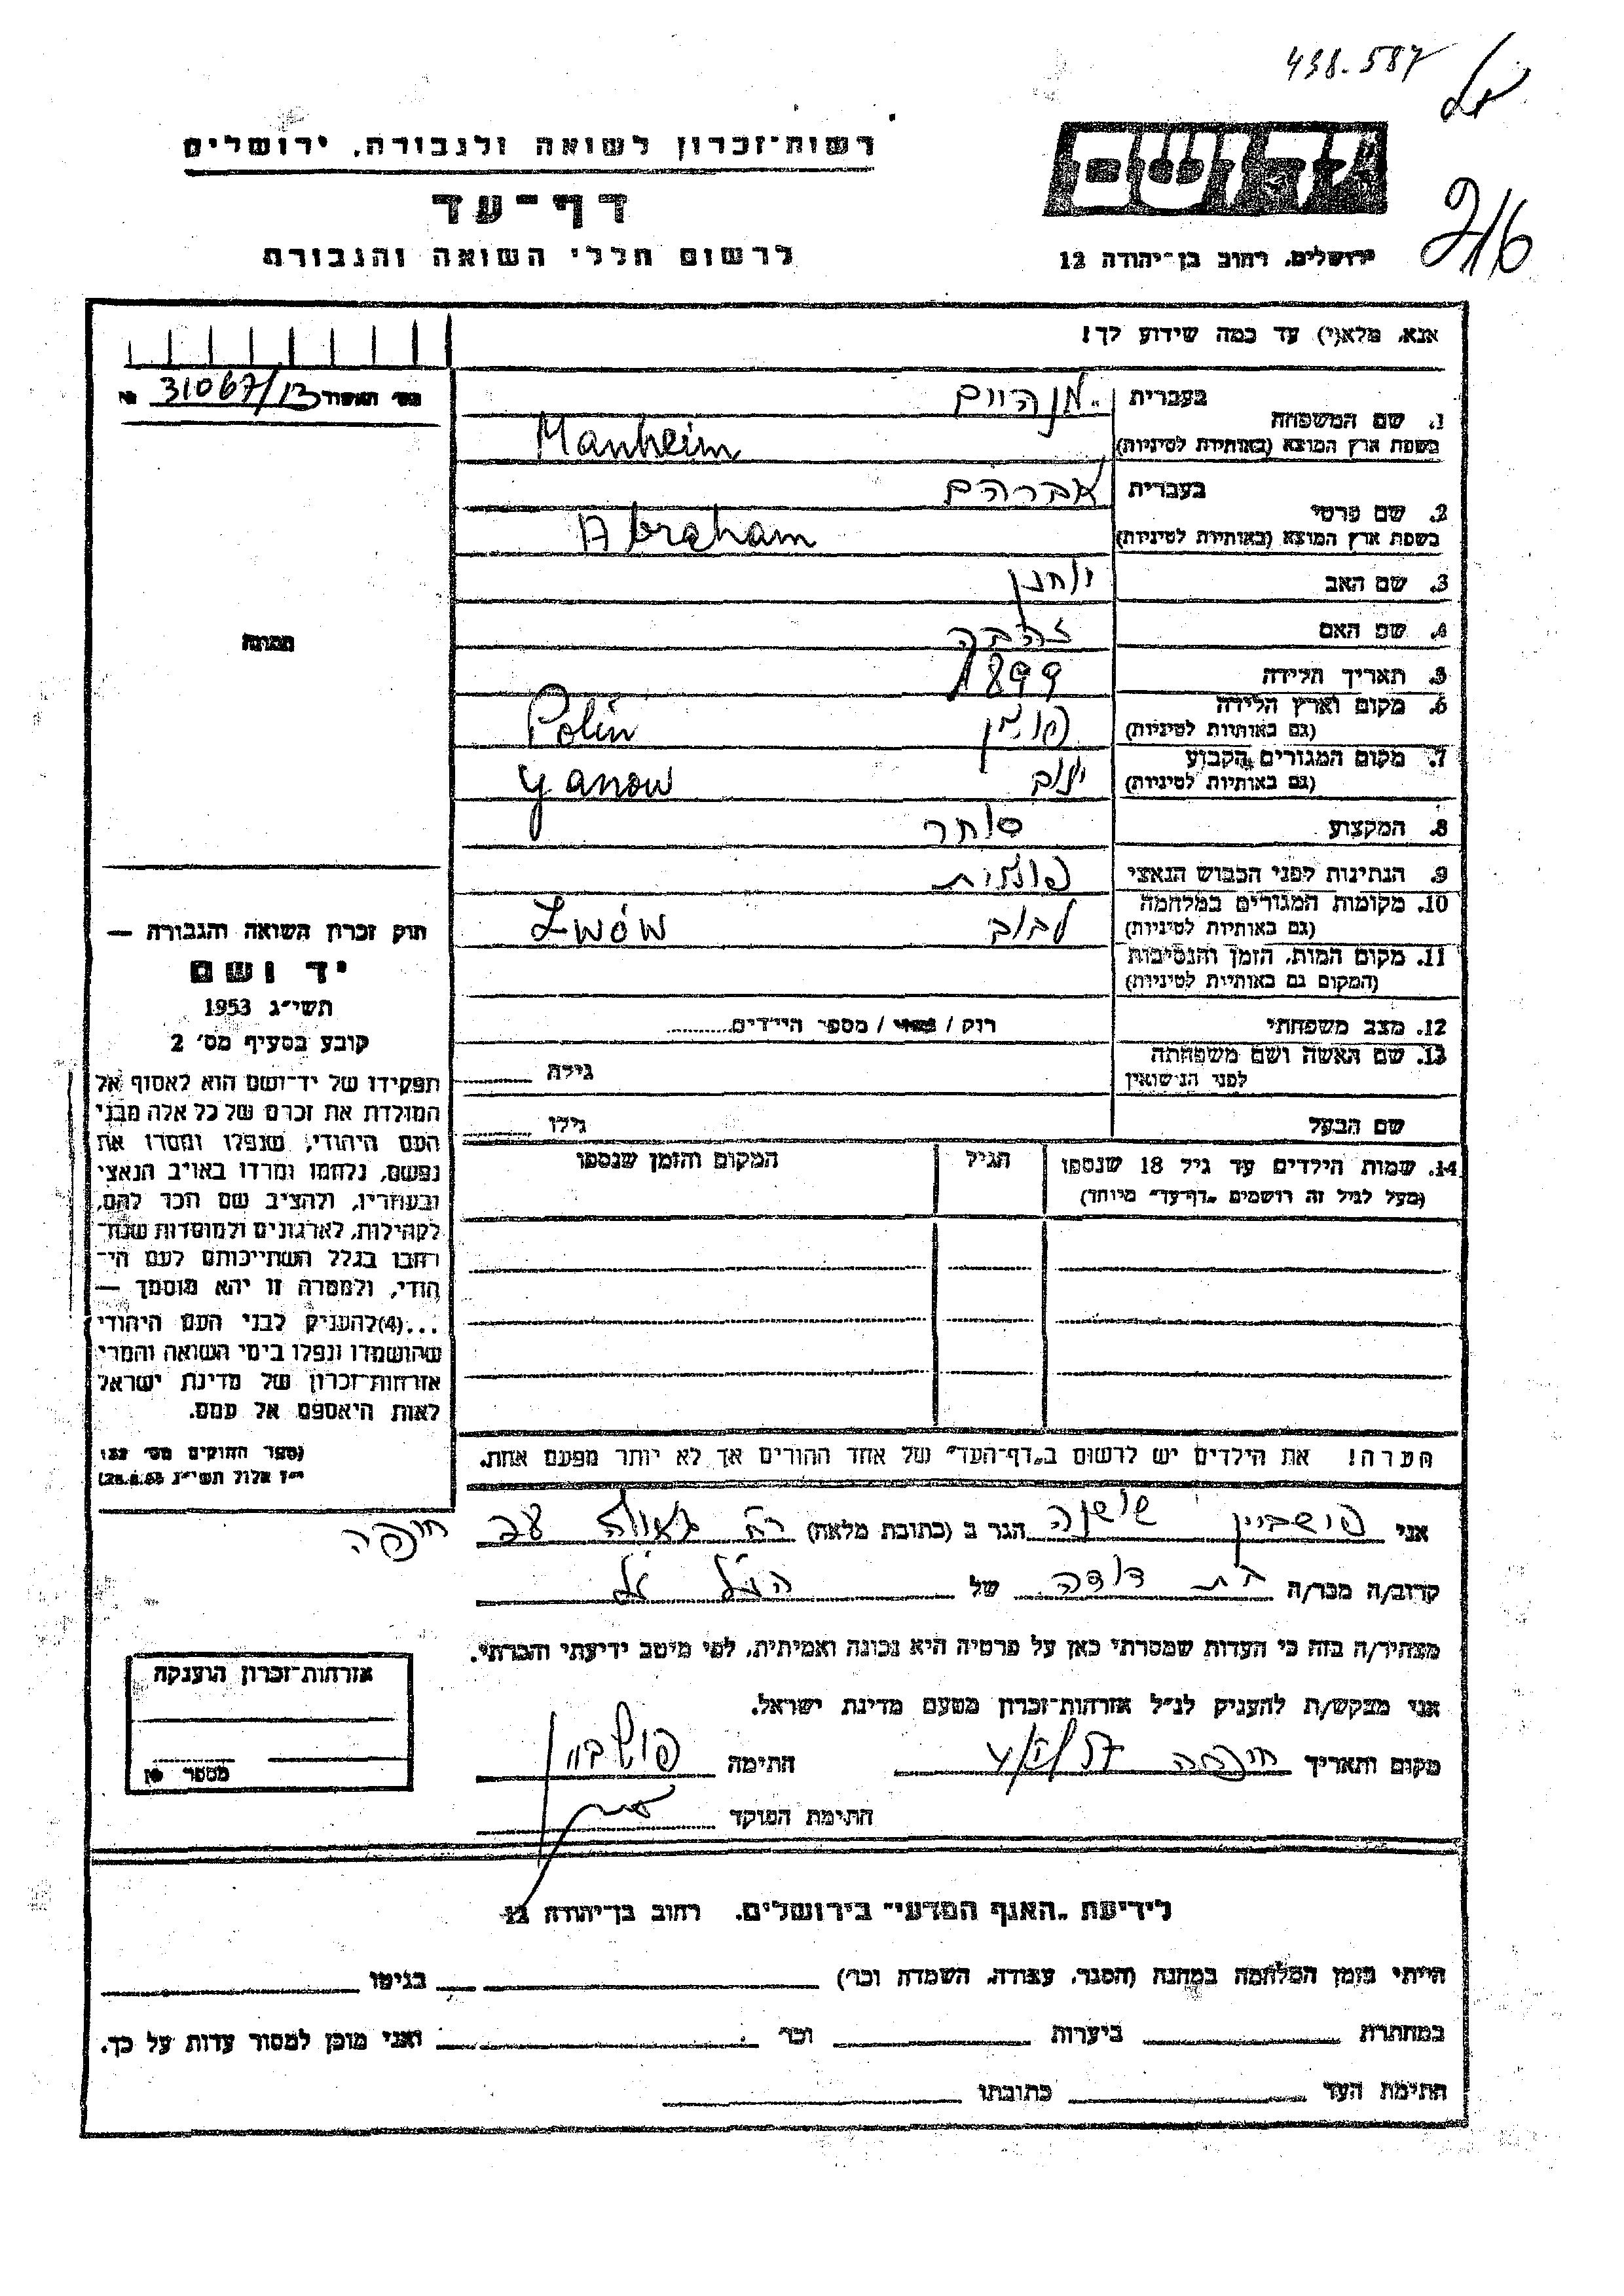 438.587
216
רשות־זכרון לשואה ולגבורה, ירושלים
דף־עד
לרשום חללי השואה והגבורה
ירושלים, רחוב בן־יהודה 12
אנא, מלא(י) עד כמה שידוע לך!
31067/13
1. שם המשפחה
בעברית מנהיים
בשפת ארץ המוצא (באותיות לטיניות) Manheim
2. שם פרטי
בעברית אברהם
בשפת ארץ המוצא (באותיות לטיניות) Abraham
3. שם האב יוחנן
4. שם האם זהבה
5. תאריך הלידה 1899
6. מקום וארץ הלידה פולין Polin
(גם באותיות לטיניות)
7. מקום המגורים הקבוע ינוב Yanow
(גם באותיות לטיניות)
8. המקצוע סוחר
9. הנתינות לפני הכבוש הנאצי פולנית
10. מקומות המגורים במלחמה לבוב Lwów
(גם באותיות לטיניות)
11. מקום המות, הזמן והנסיבות
(המקום גם באותיות לטיניות)
12. מצב משפחתי רווק / נשוי / מספר הילדים
13. שם האשה ושם משפחתה
לפני הנישואין גילה
שם הבעל גילו
14. שמות הילדים עד גיל 18 שנספו הגיל המקום והזמן שנספו
(מעל לגיל זה רושמים "דף־עד" מיוחד)
הערה! את הילדים יש לרשום ב"דף־העד" של אחד ההורים אך לא יותר מפעם אחת.
תמונה
חוק זכרון השואה והגבורה —
יד ושם
תשי״ג 1953
קובע בסעיף מס׳ 2
תפקידו של יד־ושם הוא לאסוף אל
המולדת את זכרם של כל אלה מבני
העם היהודי, שנפלו ומסרו את
נפשם, נלחמו ומרדו באויב הנאצי
ובעוזריו, ולהציב שם וזכר להם,
לקהילות, לארגונים ולמוסדות שנח־
רבו בגלל השתייכותם לעם הי־
הודי, ולמטרה זו יהא מוסמך —
...(4)להעניק לבני העם היהודי
שהושמדו ונפלו בימי השואה והמרי
אזרחות־זכרון של מדינת ישראל
לאות היאספם אל עמם.
(ספר החוקים מס׳ 132
י״ז אלול תשי״ג 28.8.53)
אני שושנה הגר ב (כתובת מלאה) רח גאולה חיפה
קרוב/ה מכר/ה בת דודה של הנ"ל
מצהיר/ה בזה כי העדות שמסרתי כאן על פרטיה היא נכונה ואמיתית, לפי מיטב ידיעתי והכרתי.
אני מבקש/ת להעניק לנ״ל אזרחות־זכרון מטעם מדינת ישראל.
מקום ותאריך חיפה חתימה
חתימת הפוקד
אזרחות־זכרון הוענקה
מספר
לידיעת "האגף המדעי" בירושלים, רחוב בן־יהודה 12
הייתי בזמן המלחמה במחנה (הסגר, עבודה, השמדה וכו׳) בגיטו
במחתרת ביערות וכו׳ ואני מוכן למסור עדות על כך.
חתימת העד כתובתו